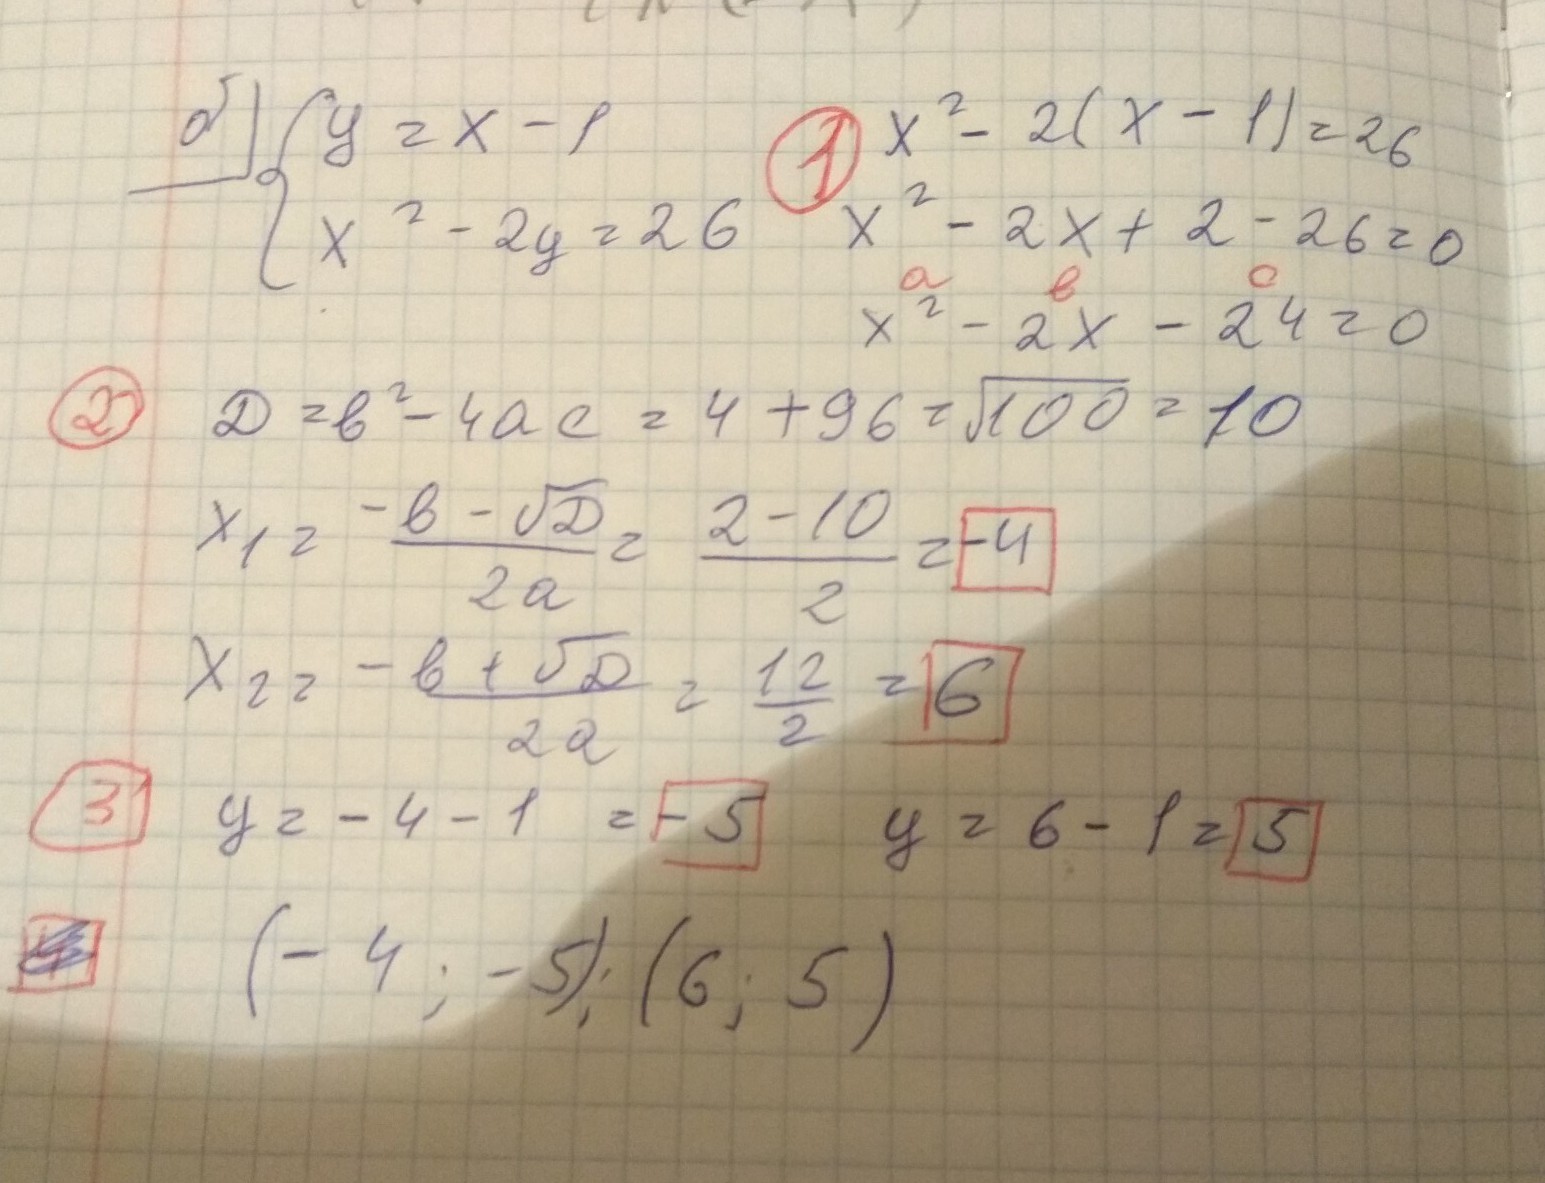 б) { y = x - 1
x² - 2y = 26
① x² - 2(x - 1) = 26
x² - 2x + 2 - 26 = 0
a в c
x² - 2x - 24 = 0
② D = в² - 4ac = 4 + 96 = √100 = 10
x₁ = (-в - √D)/2a = (2 - 10)/2 = -4
x₂ = (-в + √D)/2a = 12/2 = 6
3 y = -4 - 1 = -5 y = 6 - 1 = 5
(-4; -5); (6; 5)